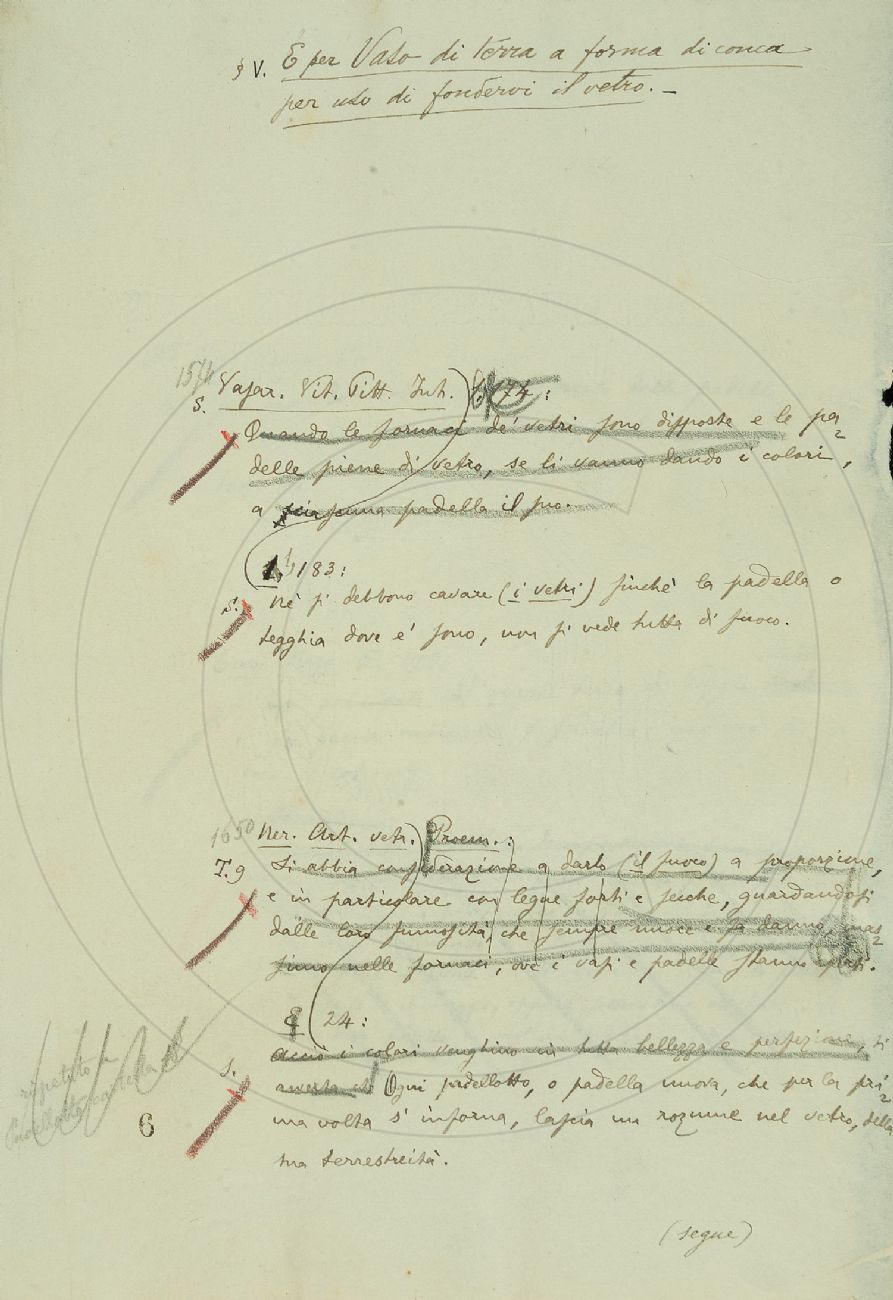 § V. E per Vaso di terra a forma di conca
per uso di fondervi il vetro. –
Vasar. Vit. Pitt. Int. ) 174:
S. Quando le fornaci de' vetri sono disposte e le pa=
delle piene di vetro, se li vanno dando i colori,
a ciascuna padella il suo.
1, 183:
S. Nè si debbono cavare (i vetri) finchè la padella o
tegghia dove e' sono, non si vede tutta di fuoco.
1650 Ner. Art. vetr. ) Proem.:
T. 9 Si abbia considerazione a darlo (il fuoco) a proporzione,
e in particolare con legne forti e secche, guardandosi
dalle loro fumosità, che sempre nuoce e fa danno, mas=
simo nelle fornaci, ove i vasi e padelle stanno
E ( 24:
Acciò i colori venghino in tutta bellezza e perfezione, si
S. avverta che Ogni padellotto, o padella nuova, che per la pri=
ma volta s' inforna, lascia un rozzume nel vetro, della
sua terrestreità.
ripetuto in
6
(segue)